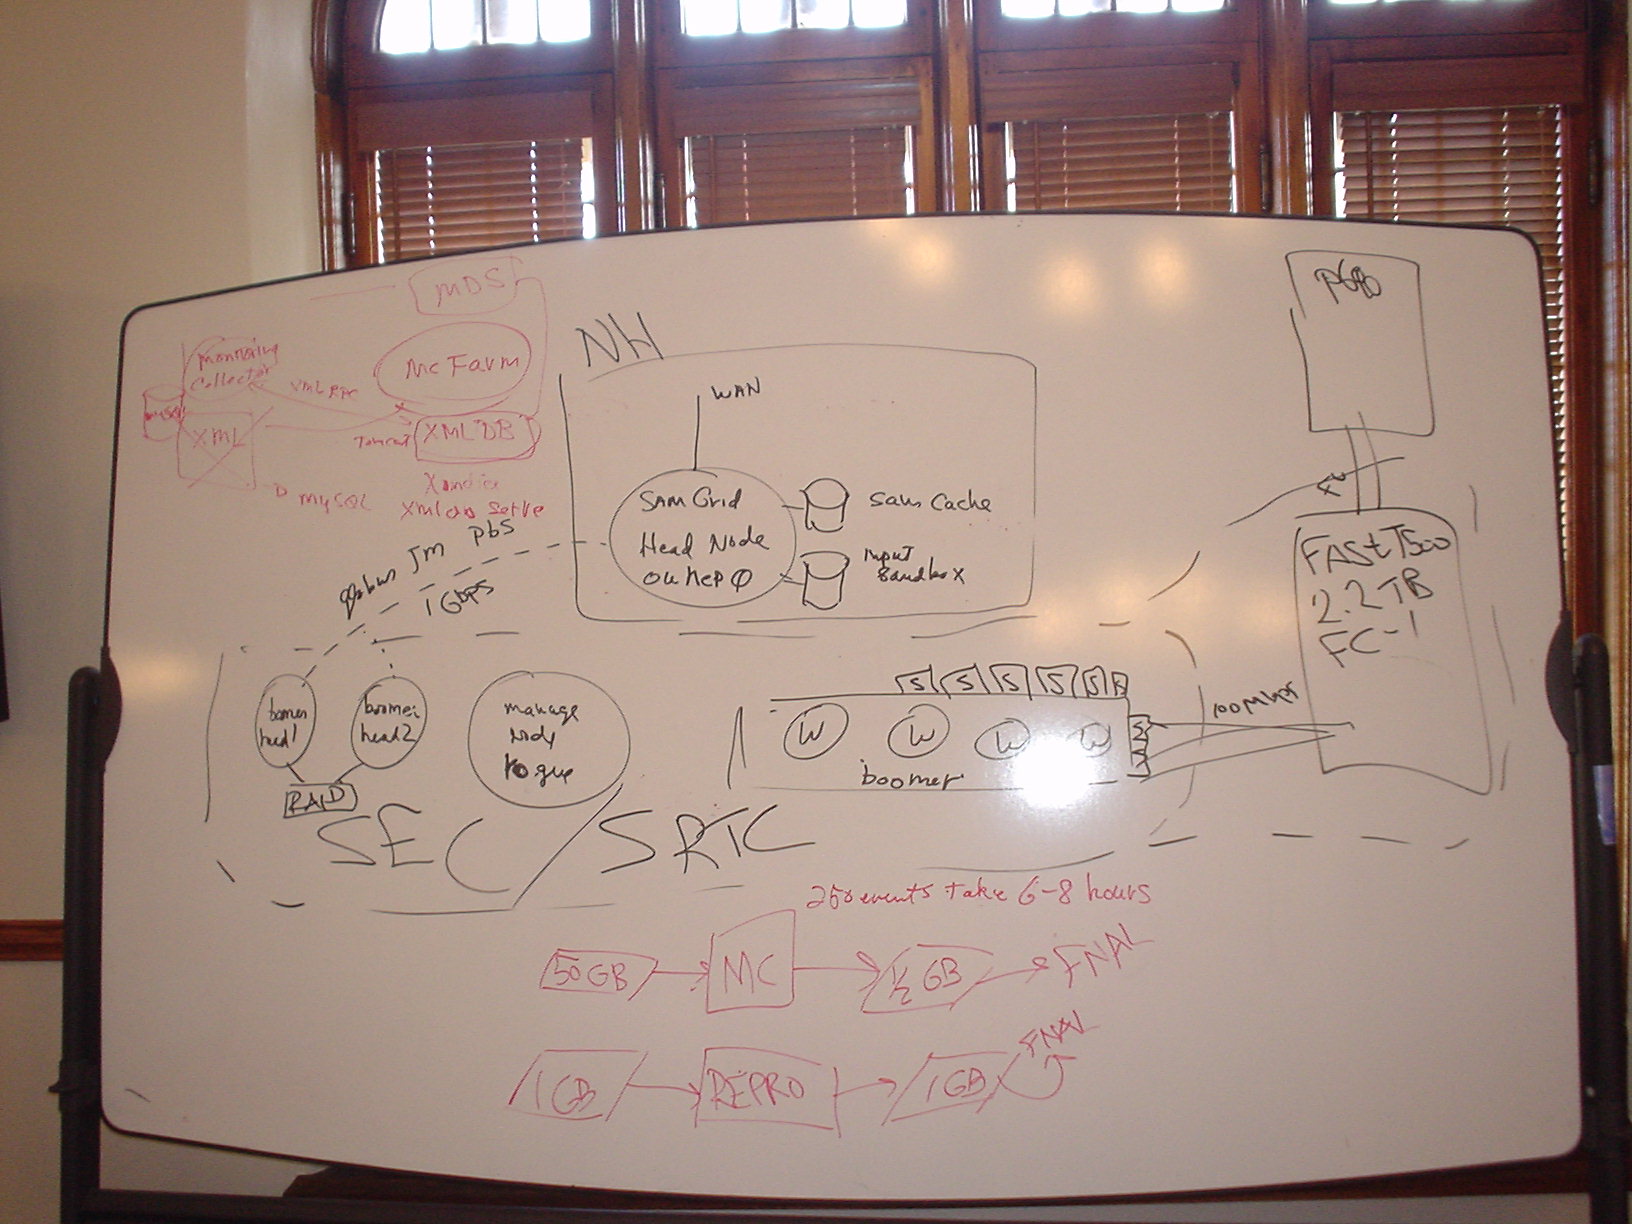 MDS
Monitoring
Collector
Mc Farm
XML RPC
mysql
XML
Tomcat
XML DB
MySQL
Xindice
XmlDB Serve
NH
WAN
SAM Grid
Head Node
OUHEP0
Sam Cache
Input
Sandbox
globus Jm PbS
1 Gbps
P680
FC
FAStT500
2.2TB
FC-1
boomer
head1
boomer
head2
RAID
manage
Node
Rogue
SEC/SRTC
S S S S S S
W W W W
boomer
S
100Mbps
250 events take 6-8 hours
50GB
MC
1/2 GB
FNAL
1GB
REPRO
1GB
FNAL